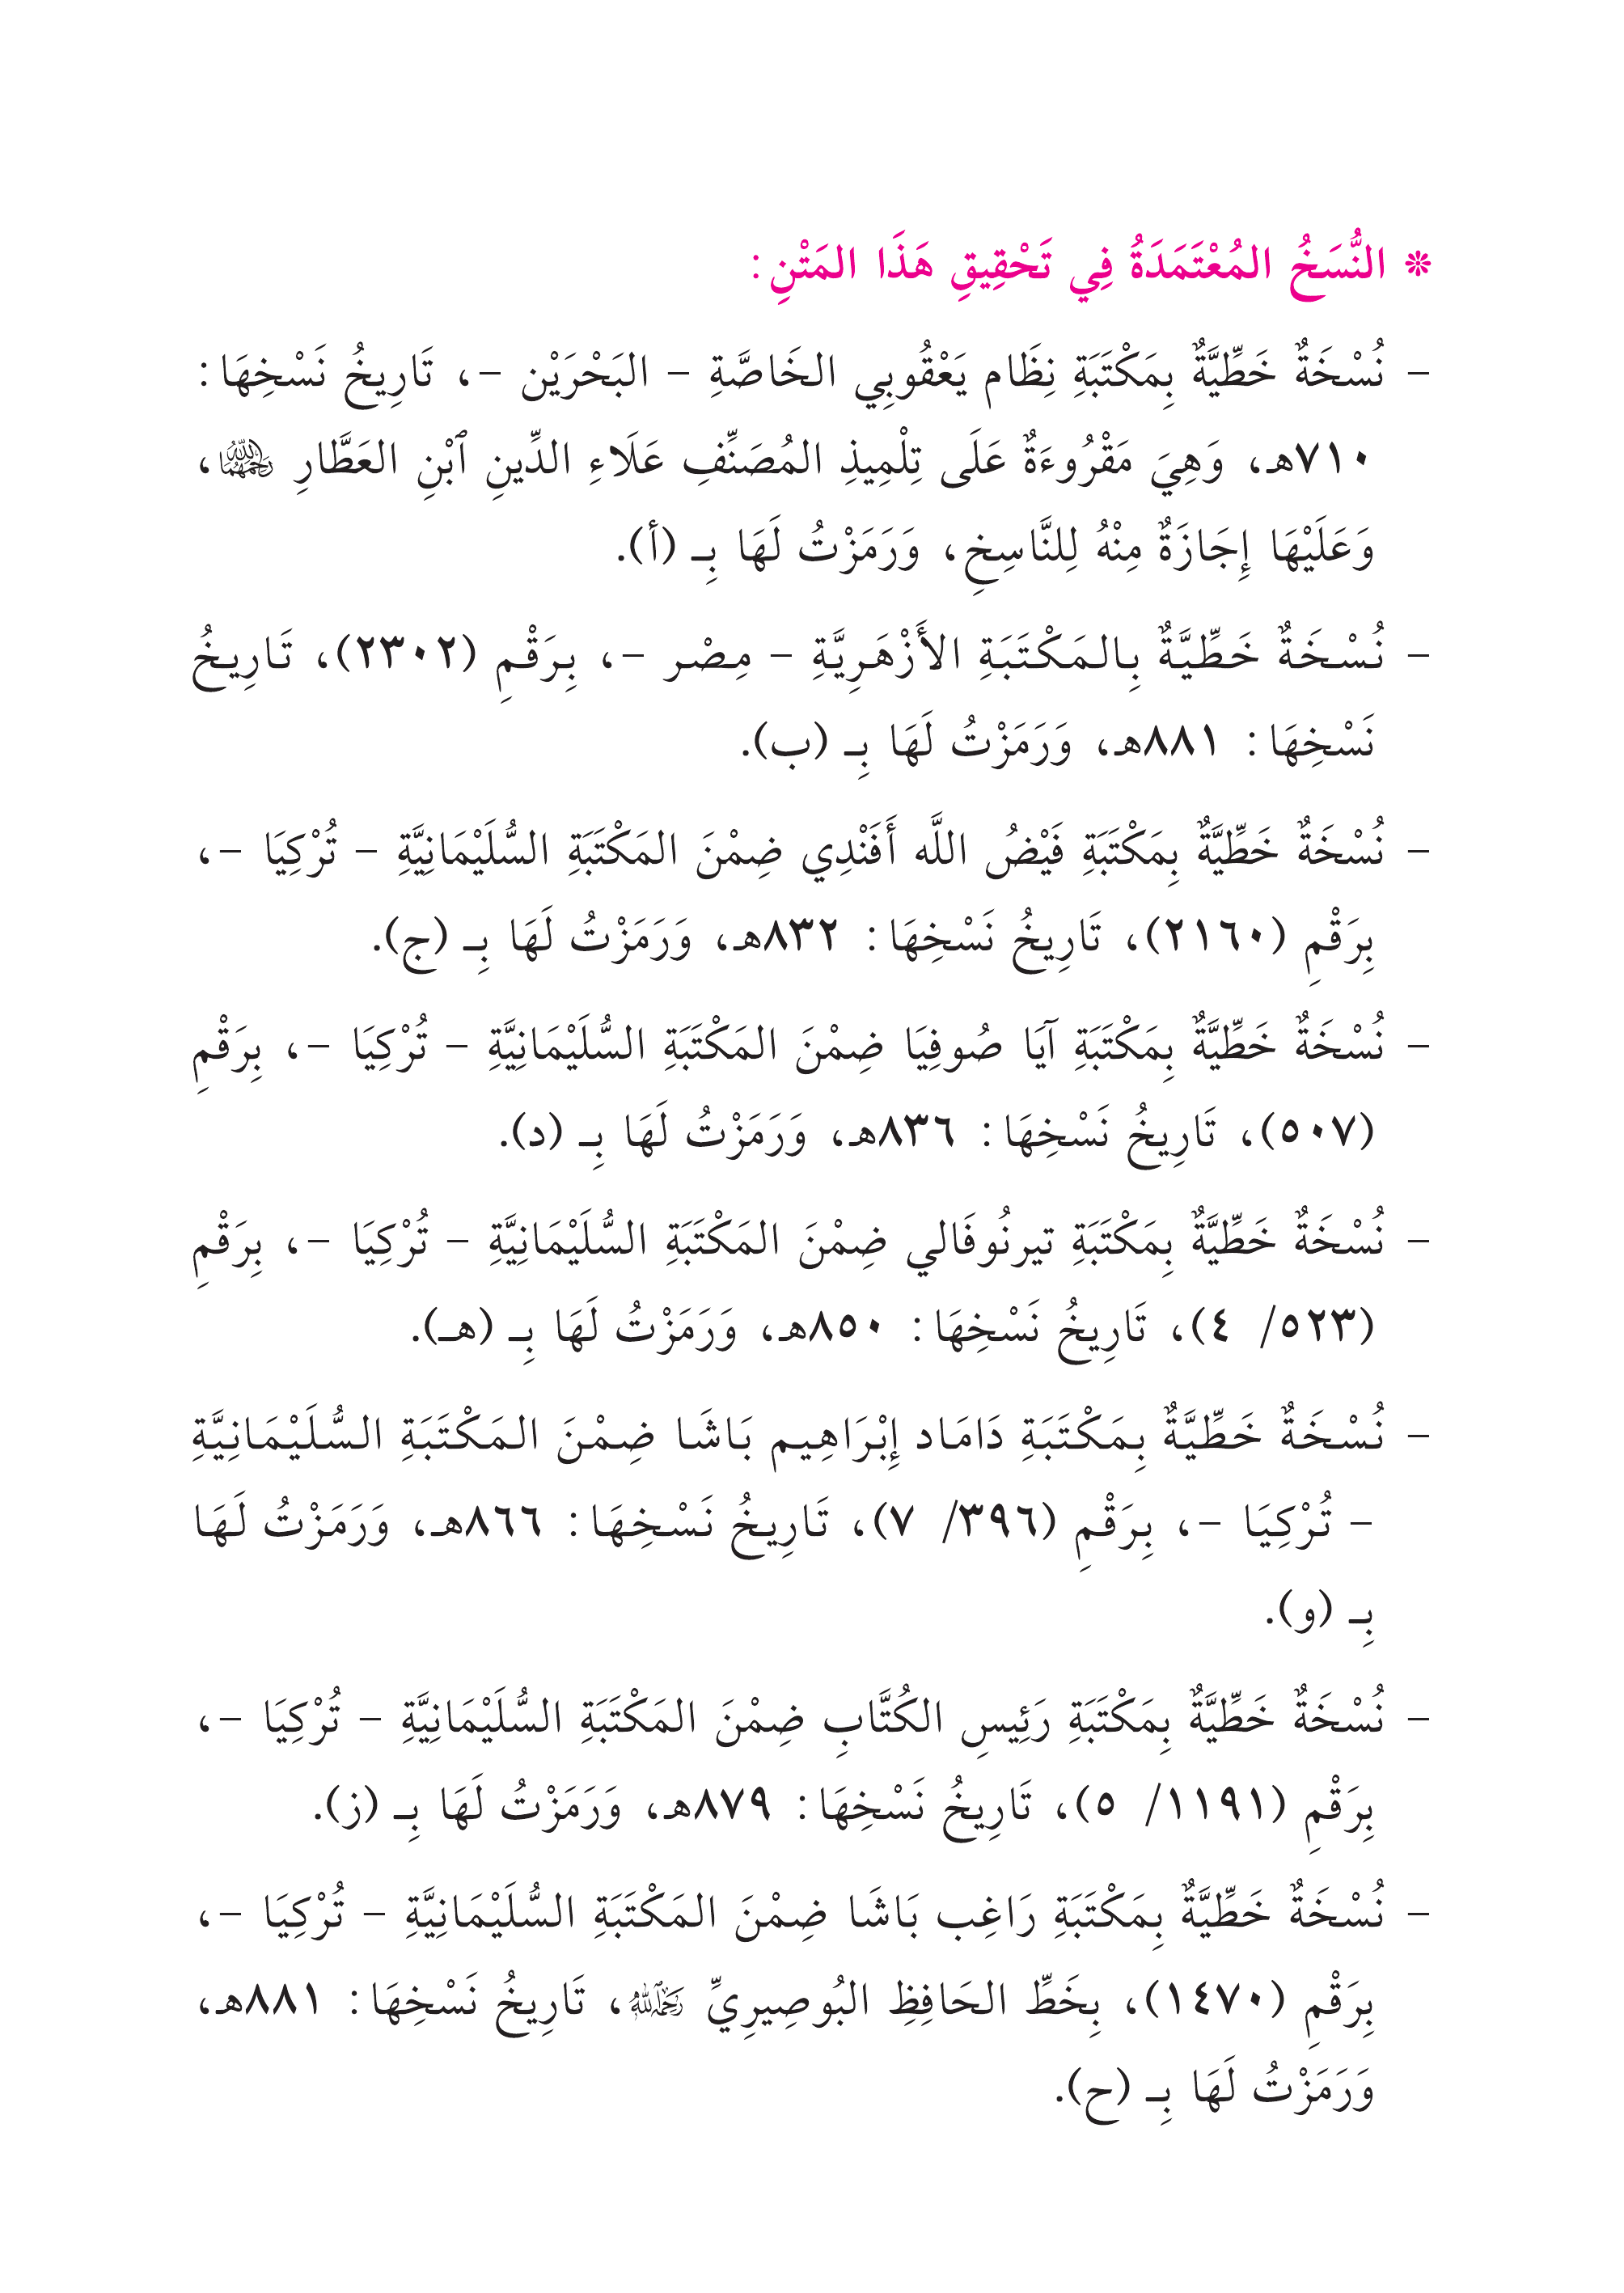 ❊ النُّسَخُ المُعْتَمَدَةُ فِي تَحْقِيقِ هَذَا المَتْنِ:
– نُسْخَةٌ خَطِّيَّةٌ بِمَكْتَبَةِ نِظَام يَعْقُوبِي الخَاصَّةِ – البَحْرَيْن –، تَارِيخُ نَسْخِهَا:
٧١٠هـ، وَهِيَ مَقْرُوءَةٌ عَلَى تِلْمِيذِ المُصَنِّفِ عَلَاءِ الدِّينِ ٱبْنِ العَطَّارِ رَحِمَهُمَا اللَّهُ،
وَعَلَيْهَا إِجَازَةٌ مِنْهُ لِلنَّاسِخِ، وَرَمَزْتُ لَهَا بِـ (أ).
– نُسْخَةٌ خَطِّيَّةٌ بِالمَكْتَبَةِ الأَزْهَرِيَّةِ – مِصْر –، بِرَقْمِ (٢٣٠٢)، تَارِيخُ
نَسْخِهَا: ٨٨١هـ، وَرَمَزْتُ لَهَا بِـ (ب).
– نُسْخَةٌ خَطِّيَّةٌ بِمَكْتَبَةِ فَيْضُ اللَّه أَفَنْدِي ضِمْنَ المَكْتَبَةِ السُّلَيْمَانِيَّةِ – تُرْكِيَا –،
بِرَقْمِ (٢١٦٠)، تَارِيخُ نَسْخِهَا: ٨٣٢هـ، وَرَمَزْتُ لَهَا بِـ (ج).
– نُسْخَةٌ خَطِّيَّةٌ بِمَكْتَبَةِ آيَا صُوفِيَا ضِمْنَ المَكْتَبَةِ السُّلَيْمَانِيَّةِ – تُرْكِيَا –، بِرَقْمِ
(٥٠٧)، تَارِيخُ نَسْخِهَا: ٨٣٦هـ، وَرَمَزْتُ لَهَا بِـ (د).
– نُسْخَةٌ خَطِّيَّةٌ بِمَكْتَبَةِ تيرنُوفَالي ضِمْنَ المَكْتَبَةِ السُّلَيْمَانِيَّةِ – تُرْكِيَا –، بِرَقْمِ
(٥٢٣/ ٤)، تَارِيخُ نَسْخِهَا: ٨٥٠هـ، وَرَمَزْتُ لَهَا بِـ (هـ).
– نُسْخَةٌ خَطِّيَّةٌ بِمَكْتَبَةِ دَامَاد إِبْرَاهِيم بَاشَا ضِمْنَ المَكْتَبَةِ السُّلَيْمَانِيَّةِ
– تُرْكِيَا –، بِرَقْمِ (٣٩٦/ ٧)، تَارِيخُ نَسْخِهَا: ٨٦٦هـ، وَرَمَزْتُ لَهَا
بِـ (و).
– نُسْخَةٌ خَطِّيَّةٌ بِمَكْتَبَةِ رَئِيسِ الكُتَّابِ ضِمْنَ المَكْتَبَةِ السُّلَيْمَانِيَّةِ – تُرْكِيَا –،
بِرَقْمِ (١١٩١/ ٥)، تَارِيخُ نَسْخِهَا: ٨٧٩هـ، وَرَمَزْتُ لَهَا بِـ (ز).
– نُسْخَةٌ خَطِّيَّةٌ بِمَكْتَبَةِ رَاغِب بَاشَا ضِمْنَ المَكْتَبَةِ السُّلَيْمَانِيَّةِ – تُرْكِيَا –،
بِرَقْمِ (١٤٧٠)، بِخَطِّ الحَافِظِ البُوصِيرِيِّ رَحِمَهُ ٱللَّهُ، تَارِيخُ نَسْخِهَا: ٨٨١هـ،
وَرَمَزْتُ لَهَا بِـ (ح).